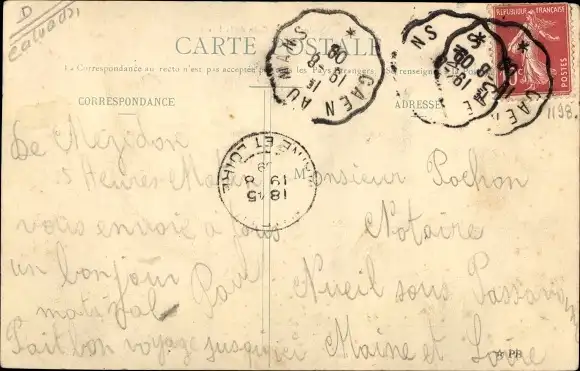 D
Calvados
CARTE POSTALE
La Correspondance au recto n'est pas acceptée par les Pays étrangers. Se renseigner à la Poste
CORRESPONDANCE
ADRESSE
RÉPUBLIQUE FRANÇAISE
POSTES
CAEN AU MANS
19-8
08
CAEN
1198
De Mézidon
5 Heures Matin
vous envoie à tous
un bonjour
matinal Paul
Fait bon voyage jusqu'ici
MAINE ET LOIRE
18 45
19 8
08
Monsieur Pochon
Notaire
Nueil sous Passavant
Maine et Loire
A PR